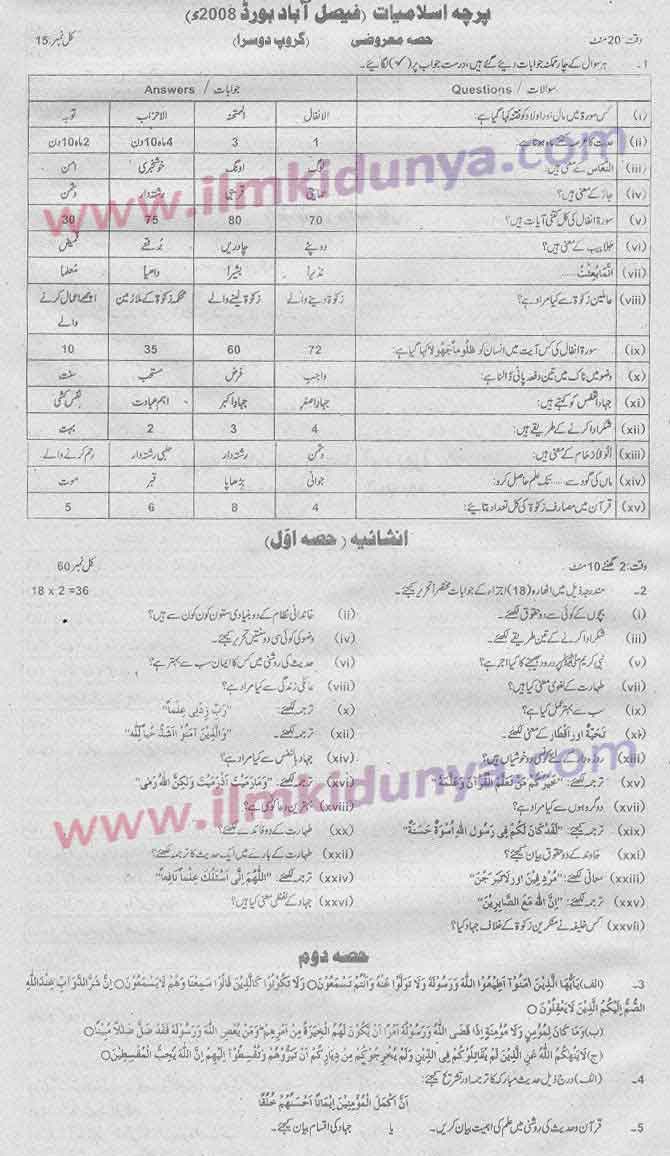 پرچہ اسلامیات (فیصل آباد بورڈ 2008ء)
وقت: 20 منٹ حصہ معروضی (گروپ دوسرا) کل نمبر: 15
1۔ ہر سوال کے چار ممکنہ جوابات دیئے گئے ہیں، درست جواب پر (✓) لگایئے۔
سوالات / Questions جوابات / Answers
(i) کس سورۃ میں مال اور اولاد کو فتنہ کہا گیا ہے: الانفال الممتحنہ الاحزاب توبہ
(ii) عدت کا عرصہ کتنے ماہ ہوتا ہے: 1 3 4 ماہ 10 دن 2 ماہ 10 دن
(iii) النعاس کے معنی ہیں: اونگ خوشخبری امن
(iv) جار کے معنی ہیں؟ رشتہ دار دشمن
(v) سورۃ انفال کی کل کتنی آیات ہیں؟ 70 80 75 30
(vi) جلابیب کے معنی ہیں؟ دوپٹے چادریں برقعے قمیض
(vii) اِنَّمَا بُعِثْتُ ...... نذیرا بشیرا داعیا معلما
(viii) عاملین زکوٰۃ سے کیا مراد ہے؟ زکوٰۃ دینے والے زکوٰۃ لینے والے محکمہ زکوٰۃ کے ملازمین اچھے اعمال کرنے والے
(ix) سورۃ انفال کی کس آیت میں انسان کو ظَلُوماً جَهُولا کہا گیا ہے: 72 60 35 10
(x) وضو میں ناک میں تین دفعہ پانی ڈالنا ہے: واجب فرض مستحب سنت
(xi) جہاد بالنفس کو کہتے ہیں: جہاد اصغر جہاد اکبر اہم عبادت نفس کشی
(xii) شکر ادا کرنے کے طریقے ہیں: 4 3 2 بہت
(xiii) اُولُو الْاَرْحَام کے معنی ہیں: دشمن رشتہ دار صلبی رشتہ دار رحم کرنے والے
(xiv) ماں کی گود سے ...... تک علم حاصل کرو: جوانی بڑھاپا قبر موت
(xv) قرآن میں مصارف زکوٰۃ کی کل تعداد بتایئے: 4 8 6 5
انشائیہ (حصہ اوّل)
وقت: 2 گھنٹے 10 منٹ کل نمبر 60
2۔ مندرجہ ذیل میں اٹھارہ (18) اجزاء کے جوابات مختصراً تحریر کیجئے۔ 18 x 2 =36
(i) بچوں کے کوئی سے دو حقوق لکھئے۔ (ii) خاندانی نظام کے دو بنیادی ستون کون کون سے ہیں؟
(iii) شکر ادا کرنے کے تین طریقے لکھئے۔ (iv) وضو کی کوئی سی دو سنتیں تحریر کیجئے۔
(v) نبی کریم ﷺ پر درود بھیجنے کا کیا اجر ہے؟ (vi) حدیث کی روشنی میں کس کا ایمان سب سے بہتر ہے؟
(vii) طہارت کے لغوی معنی کیا ہیں؟ (viii) عائلی زندگی سے کیا مراد ہے؟
(ix) سب سے بہتر عمل کیا ہے؟ (x) ترجمہ لکھئے: "رَبِّ زِدْنِي عِلْماً"
(xi) تَحِيَّة اور اَفْطَار کے معنی لکھئے۔ (xii) ترجمہ لکھئے۔ "وَالَّذِينَ آمَنُوا اَشَدُّ حُبًّا لِلّٰهِ"
(xiii) روزہ دار کے لئے کونسی دو خوشیاں ہیں؟ (xiv) جہاد بالنفس سے کیا مراد ہے؟
(xv) ترجمہ لکھئے: "خَيْرُكُمْ مَنْ تَعَلَّمَ الْقُرْآنَ وَعَلَّمَهُ" (xvi) ترجمہ لکھئے۔ "وَمَا رَمَيْتَ اِذْ رَمَيْتَ وَلٰكِنَّ اللّٰهَ رَمٰى"
(xvii) دو گروہوں سے کیا مراد ہے؟ (xviii) بہترین دعا کونسی ہے؟
(xix) ترجمہ کیجئے: "لَقَدْ كَانَ لَكُمْ فِي رَسُولِ اللّٰهِ اُسْوَةٌ حَسَنَةٌ" (xx) طہارت کے دو فائدے لکھئے؟
(xxi) خاوند کے دو حقوق بیان کیجئے؟ (xxii) طہارت کے بارے میں ایک حدیث کا ترجمہ لکھئے؟
(xxiii) معانی لکھئے: (xxiv) ترجمہ لکھئے: "اَللّٰهُمَّ اِنِّي اَسْئَلُكَ عِلْماً نَافِعاً"
(xxv) ترجمہ لکھئے: "اِنَّ اللّٰهَ مَعَ الصَّابِرِينَ" (xxvi) جہاد کے لفظی معنی کیا ہیں؟
(xxvii) کس خلیفہ نے منکرین زکوٰۃ کے خلاف جہاد کیا؟
حصہ دوم
3۔ (الف) يٰاَيُّهَا الَّذِينَ اٰمَنُوْا اَطِيْعُوا اللّٰهَ وَرَسُوْلَهٗ وَلَا تَوَلَّوْا عَنْهُ وَاَنْتُمْ تَسْمَعُوْنَ○ وَلَا تَكُوْنُوْا كَالَّذِيْنَ قَالُوْا سَمِعْنَا وَهُمْ لَا يَسْمَعُوْنَ○ اِنَّ شَرَّ الدَّوَابِّ عِنْدَ اللّٰهِ
الصُّمُّ الْبُكْمُ الَّذِيْنَ لَا يَعْقِلُوْنَ○
(ب) وَمَا كَانَ لِمُؤْمِنٍ وَّلَا مُؤْمِنَةٍ اِذَا قَضَى اللّٰهُ وَرَسُوْلُهٗ اَمْرًا اَنْ يَّكُوْنَ لَهُمُ الْخِيَرَةُ مِنْ اَمْرِهِمْ وَمَنْ يَّعْصِ اللّٰهَ وَرَسُوْلَهٗ فَقَدْ ضَلَّ ضَلٰلًا مُّبِيْنًا○
(ج) لَا يَنْهٰكُمُ اللّٰهُ عَنِ الَّذِيْنَ لَمْ يُقَاتِلُوْكُمْ فِي الدِّيْنِ وَلَمْ يُخْرِجُوْكُمْ مِّنْ دِيَارِكُمْ اَنْ تَبَرُّوْهُمْ وَتُقْسِطُوْا اِلَيْهِمْ اِنَّ اللّٰهَ يُحِبُّ الْمُقْسِطِيْنَ○
4۔ (الف) درج ذیل حدیث مبارکہ کا ترجمہ اور تشریح کیجئے:
اَنَّ اَكْمَلَ الْمُؤْمِنِيْنَ اِيْمَانًا اَحْسَنُهُمْ خُلُقًا
5۔ قرآن و حدیث کی روشنی میں علم کی اہمیت بیان کریں۔ یا جہاد کی اقسام بیان کیجئے۔
www.ilmkidunya.com
www.ilmkidunya.com